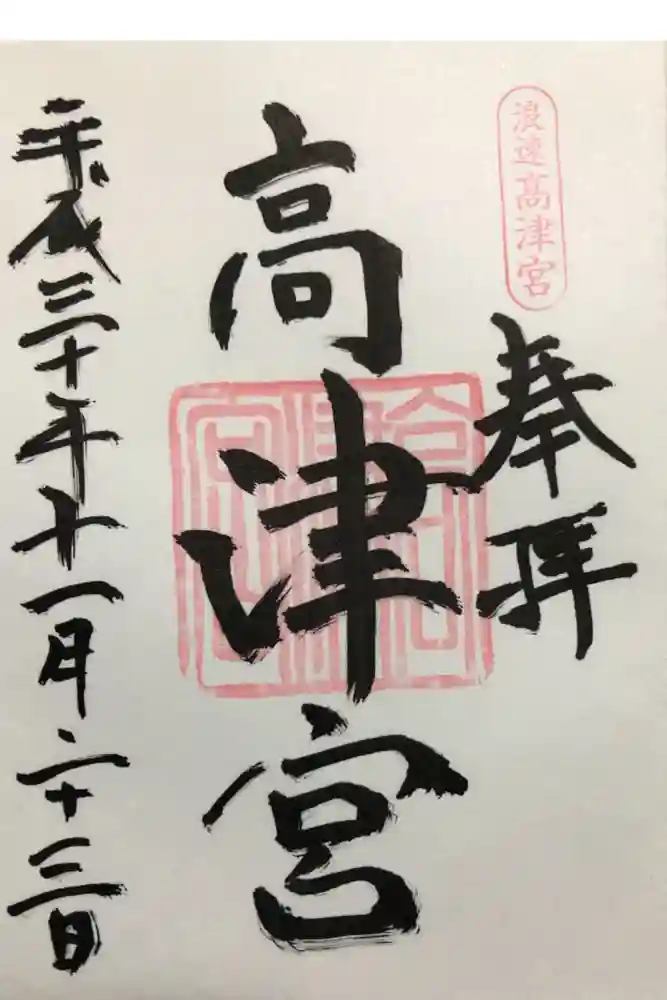 浪速高津宮
奉拝
高津宮
高津宮
平成三十年十一月二十三日